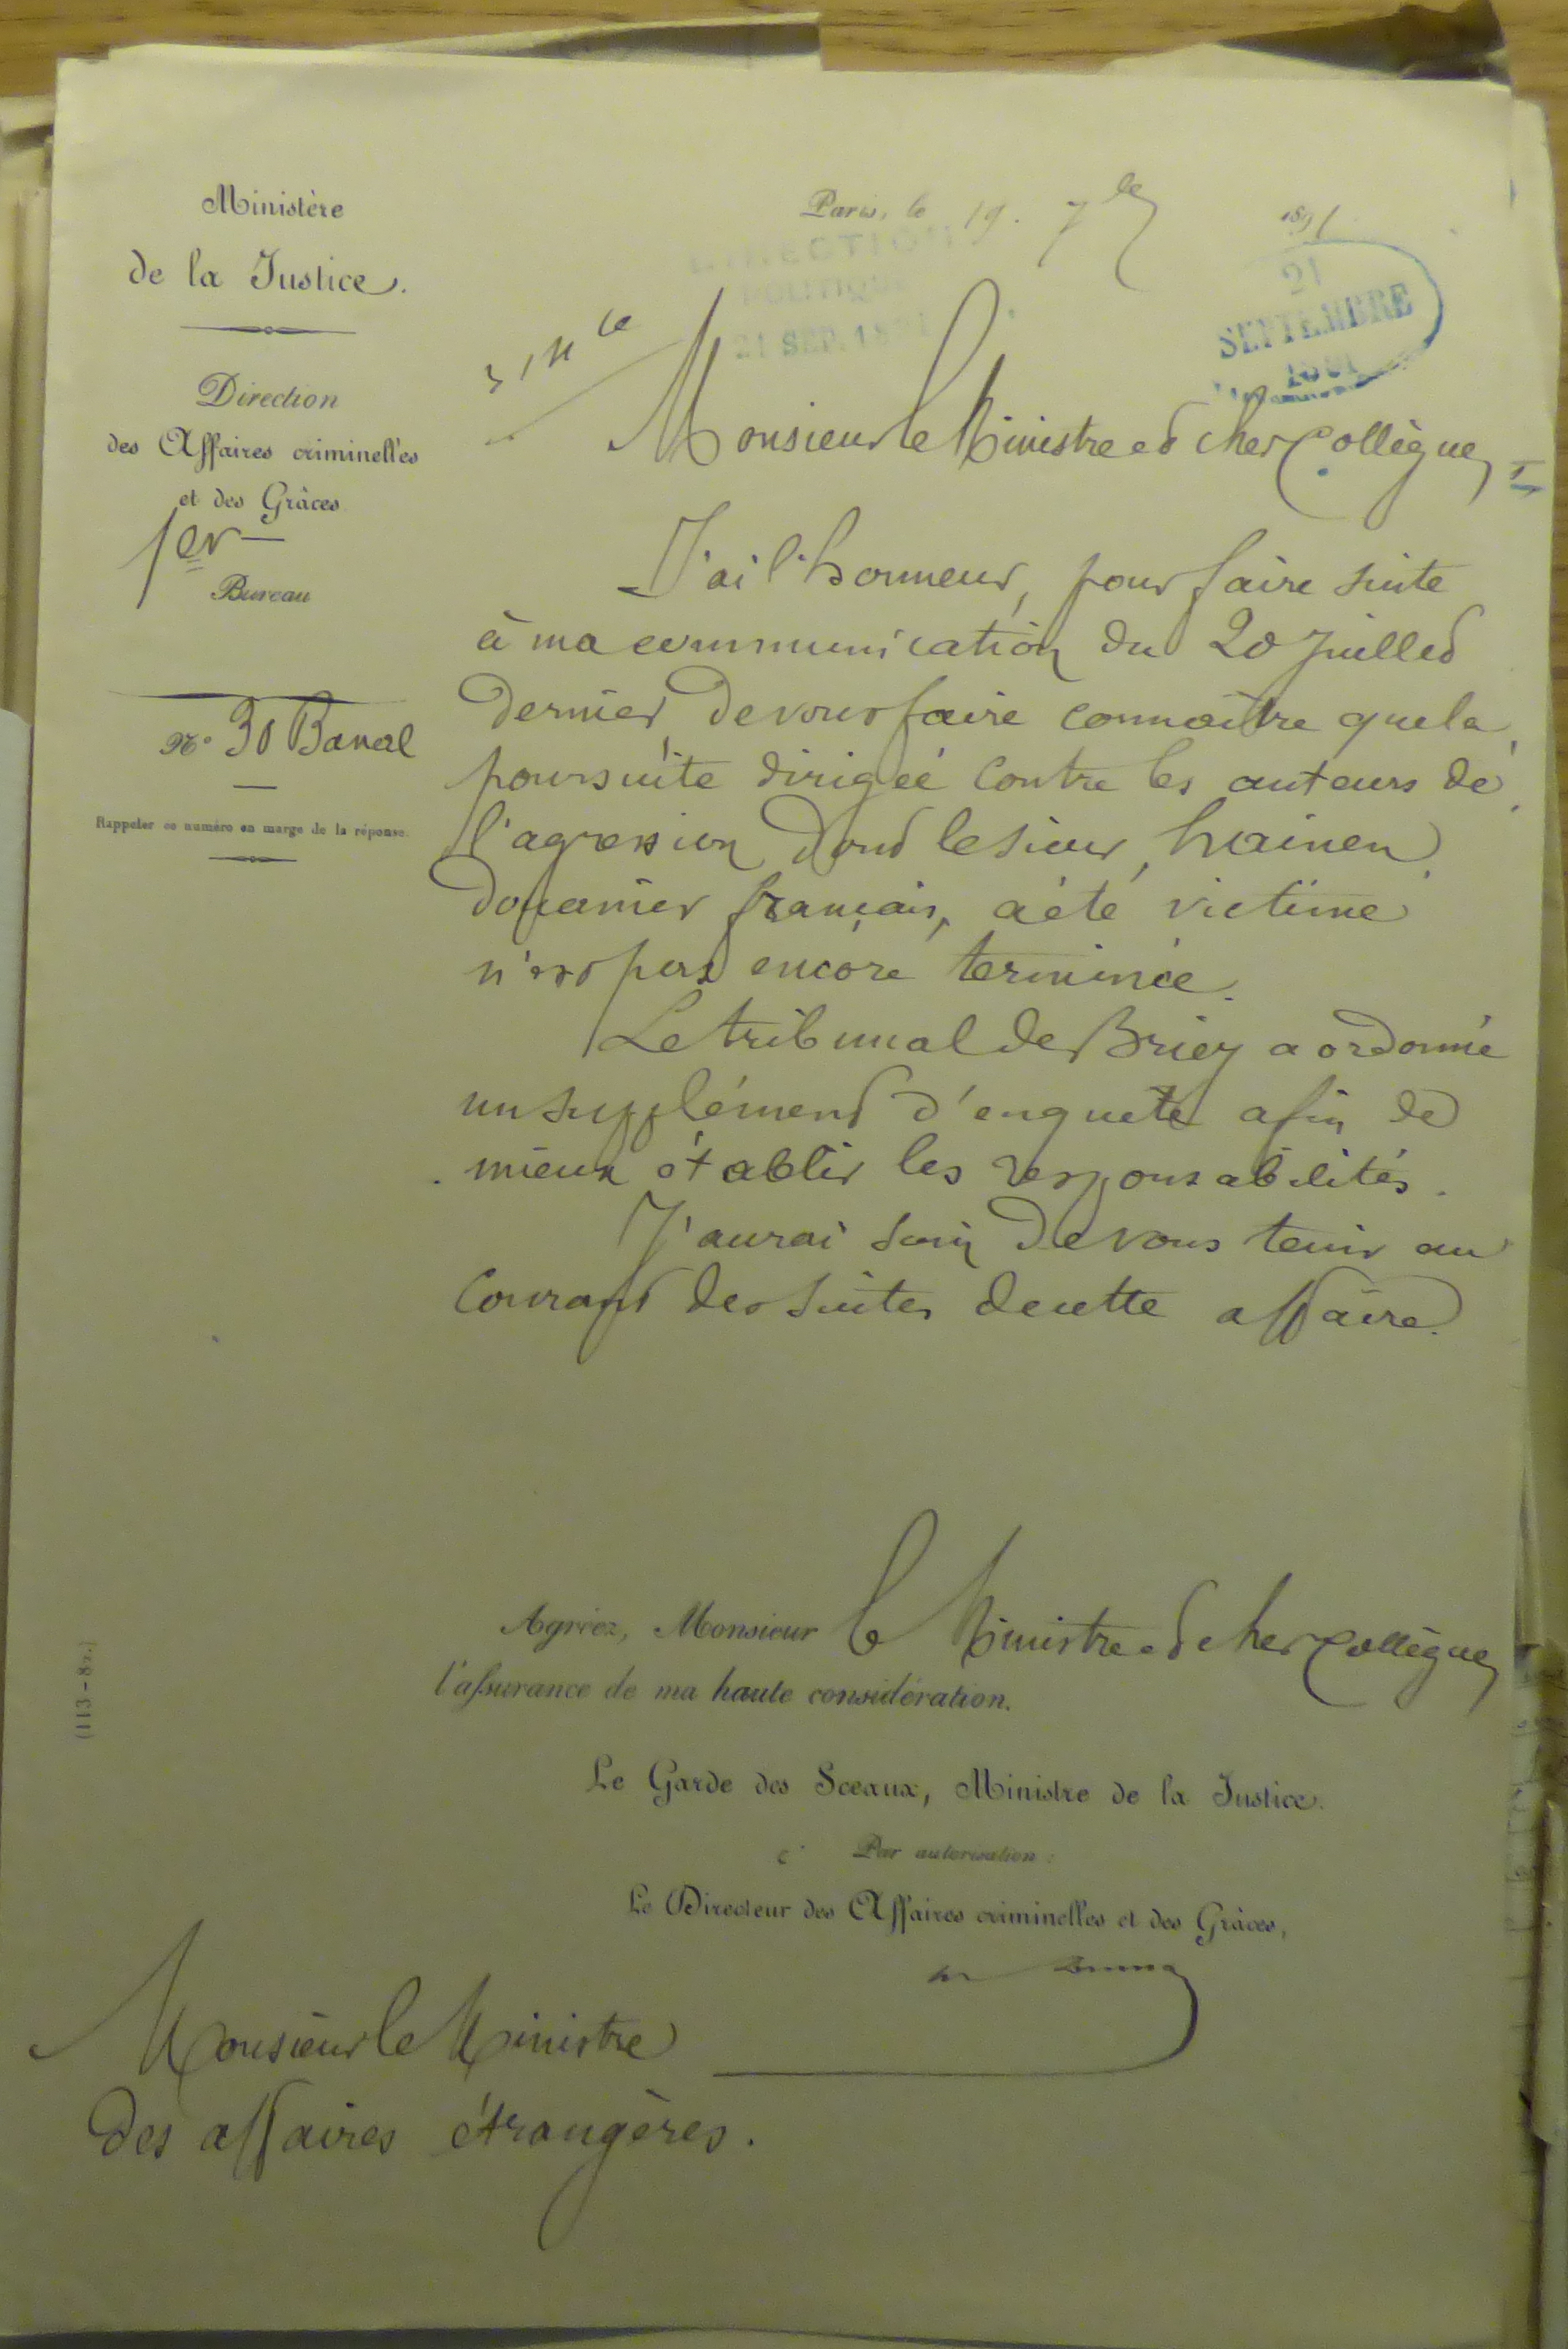 Ministère
de la Justice.
Direction
des Affaires criminelles
et des Grâces
1er
Bureau
N° 30 Banal
Rappeler ce numéro en marge de la réponse.
Paris, le 19. 7bre 1891
DIRECTION
POLITIQUE
21 SEP. 1891
21
SEPTEMBRE
1891
Monsieur le Ministre et cher Collègue,
J'ai l'honneur, pour faire suite
à ma communication du 20 Juillet
dernier, de vous faire connaître que la
poursuite dirigée contre les auteurs de
l'agression dont le sieur
douanier français, a été victime
n'est pas encore terminée.
Le tribunal de Briey a ordonné
un supplément d'enquête afin de
mieux établir les responsabilités.
J'aurai soin de vous tenir au
courant des suites de cette affaire.
Agréez, Monsieur le Ministre et cher Collègue,
l'assurance de ma haute considération.
Le Garde des Sceaux, Ministre de la Justice.
Par autorisation :
Le Directeur des Affaires criminelles et des Grâces,
Monsieur le Ministre
des affaires étrangères.
(113-82.)